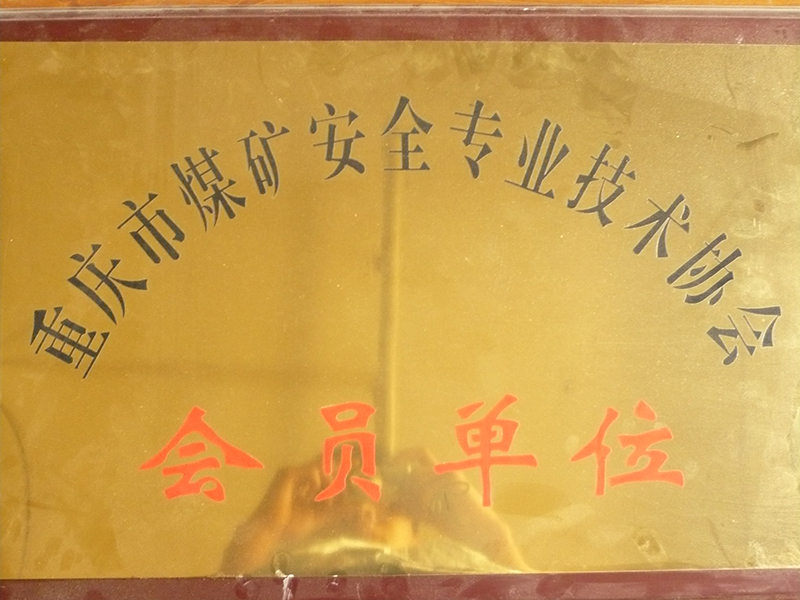 重庆市煤矿安全专业技术协会
会员单位